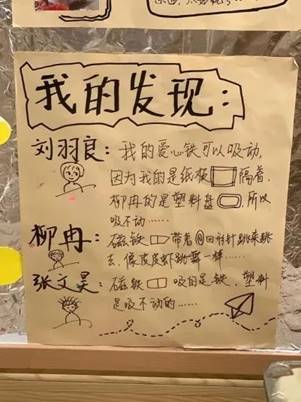 我的发现:
刘羽良: 我的爱心铁可以吸动,
因为我的是纸板隔着,
柳冉的是塑料盘,所以
吸不动……
柳冉: 磁铁带着回形针跳来跳
去,像皮皮虾跳舞一样……
张文昊: 磁铁吸的是铁,塑料
是吸不动的……